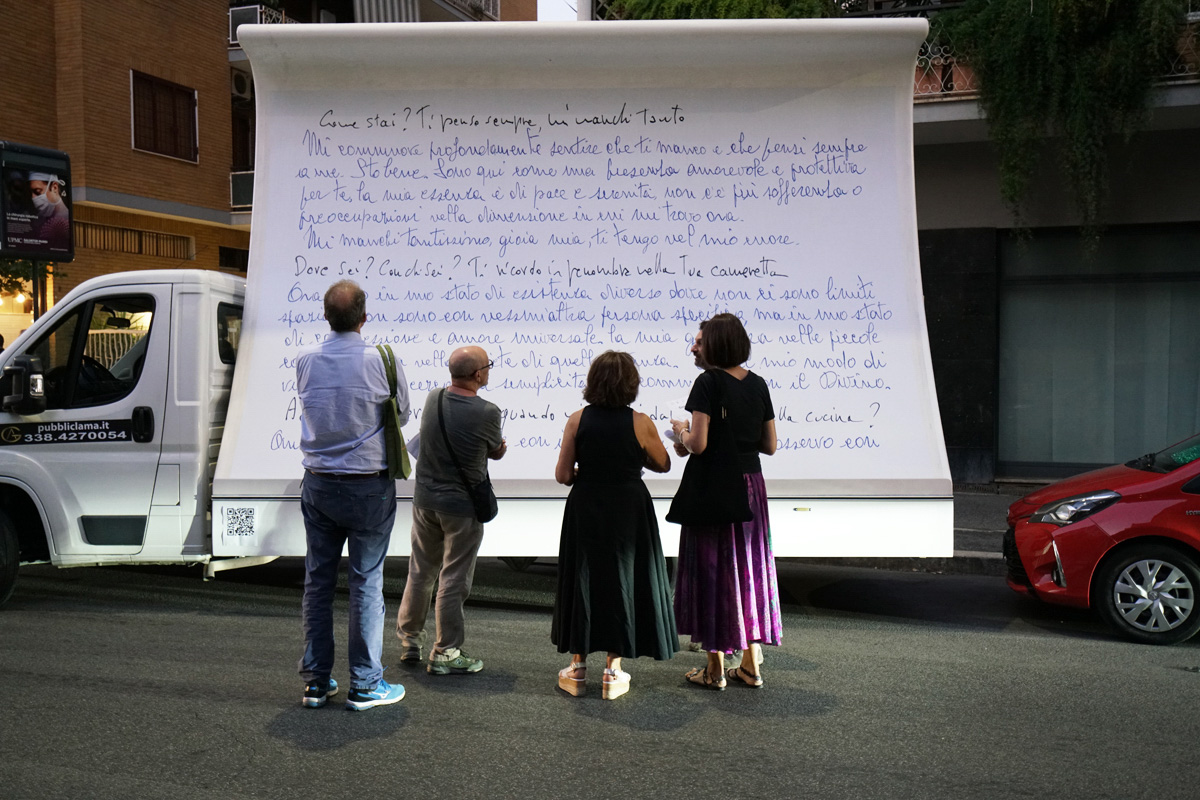 Come stai? Ti penso sempre, mi manchi tanto
Mi commuove profondamente sentire che ti manco e che pensi sempre
a me. Sto bene. Sono qui come una presenza amorevole e protettiva
per te, la mia essenza è di pace e serenità, non c'è più sofferenza o
preoccupazioni nella dimensione in cui mi trovo ora.
Mi manchi tantissimo, gioia mia, ti tengo nel mio cuore.
Dove sei? Con chi sei? Ti ricordo in penombra nella tua cameretta
in uno stato di esistenza diverso dove non ci sono limiti
non sono con nessun'altra persona specifica, ma in uno stato
di e amore universale. la mia nelle piccole
nelle di quella mio modo di
semplicità il Divino.
quando cucina?
con i osservo con
pubbliclama.it
338.4270054
UPMC